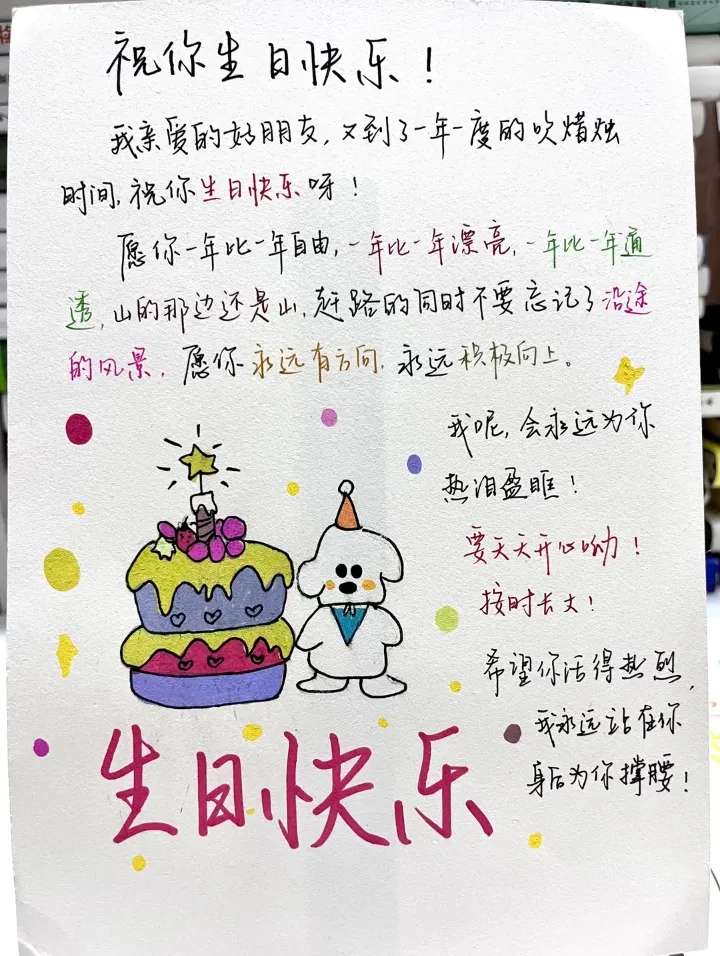 祝你生日快乐！
我亲爱的好朋友，又到了一年一度的吹蜡烛
时间，祝你生日快乐呀！
愿你一年比一年自由，一年比一年漂亮，一年比一年通
透，山的那边还是山，赶路的同时不要忘记了沿途
的风景，愿你永远有方向，永远积极向上。
我呢，会永远为你
热泪盈眶！
要天天开心呦！
按时长大！
希望你活得热烈，
我永远站在你
身后为你撑腰！
生日快乐